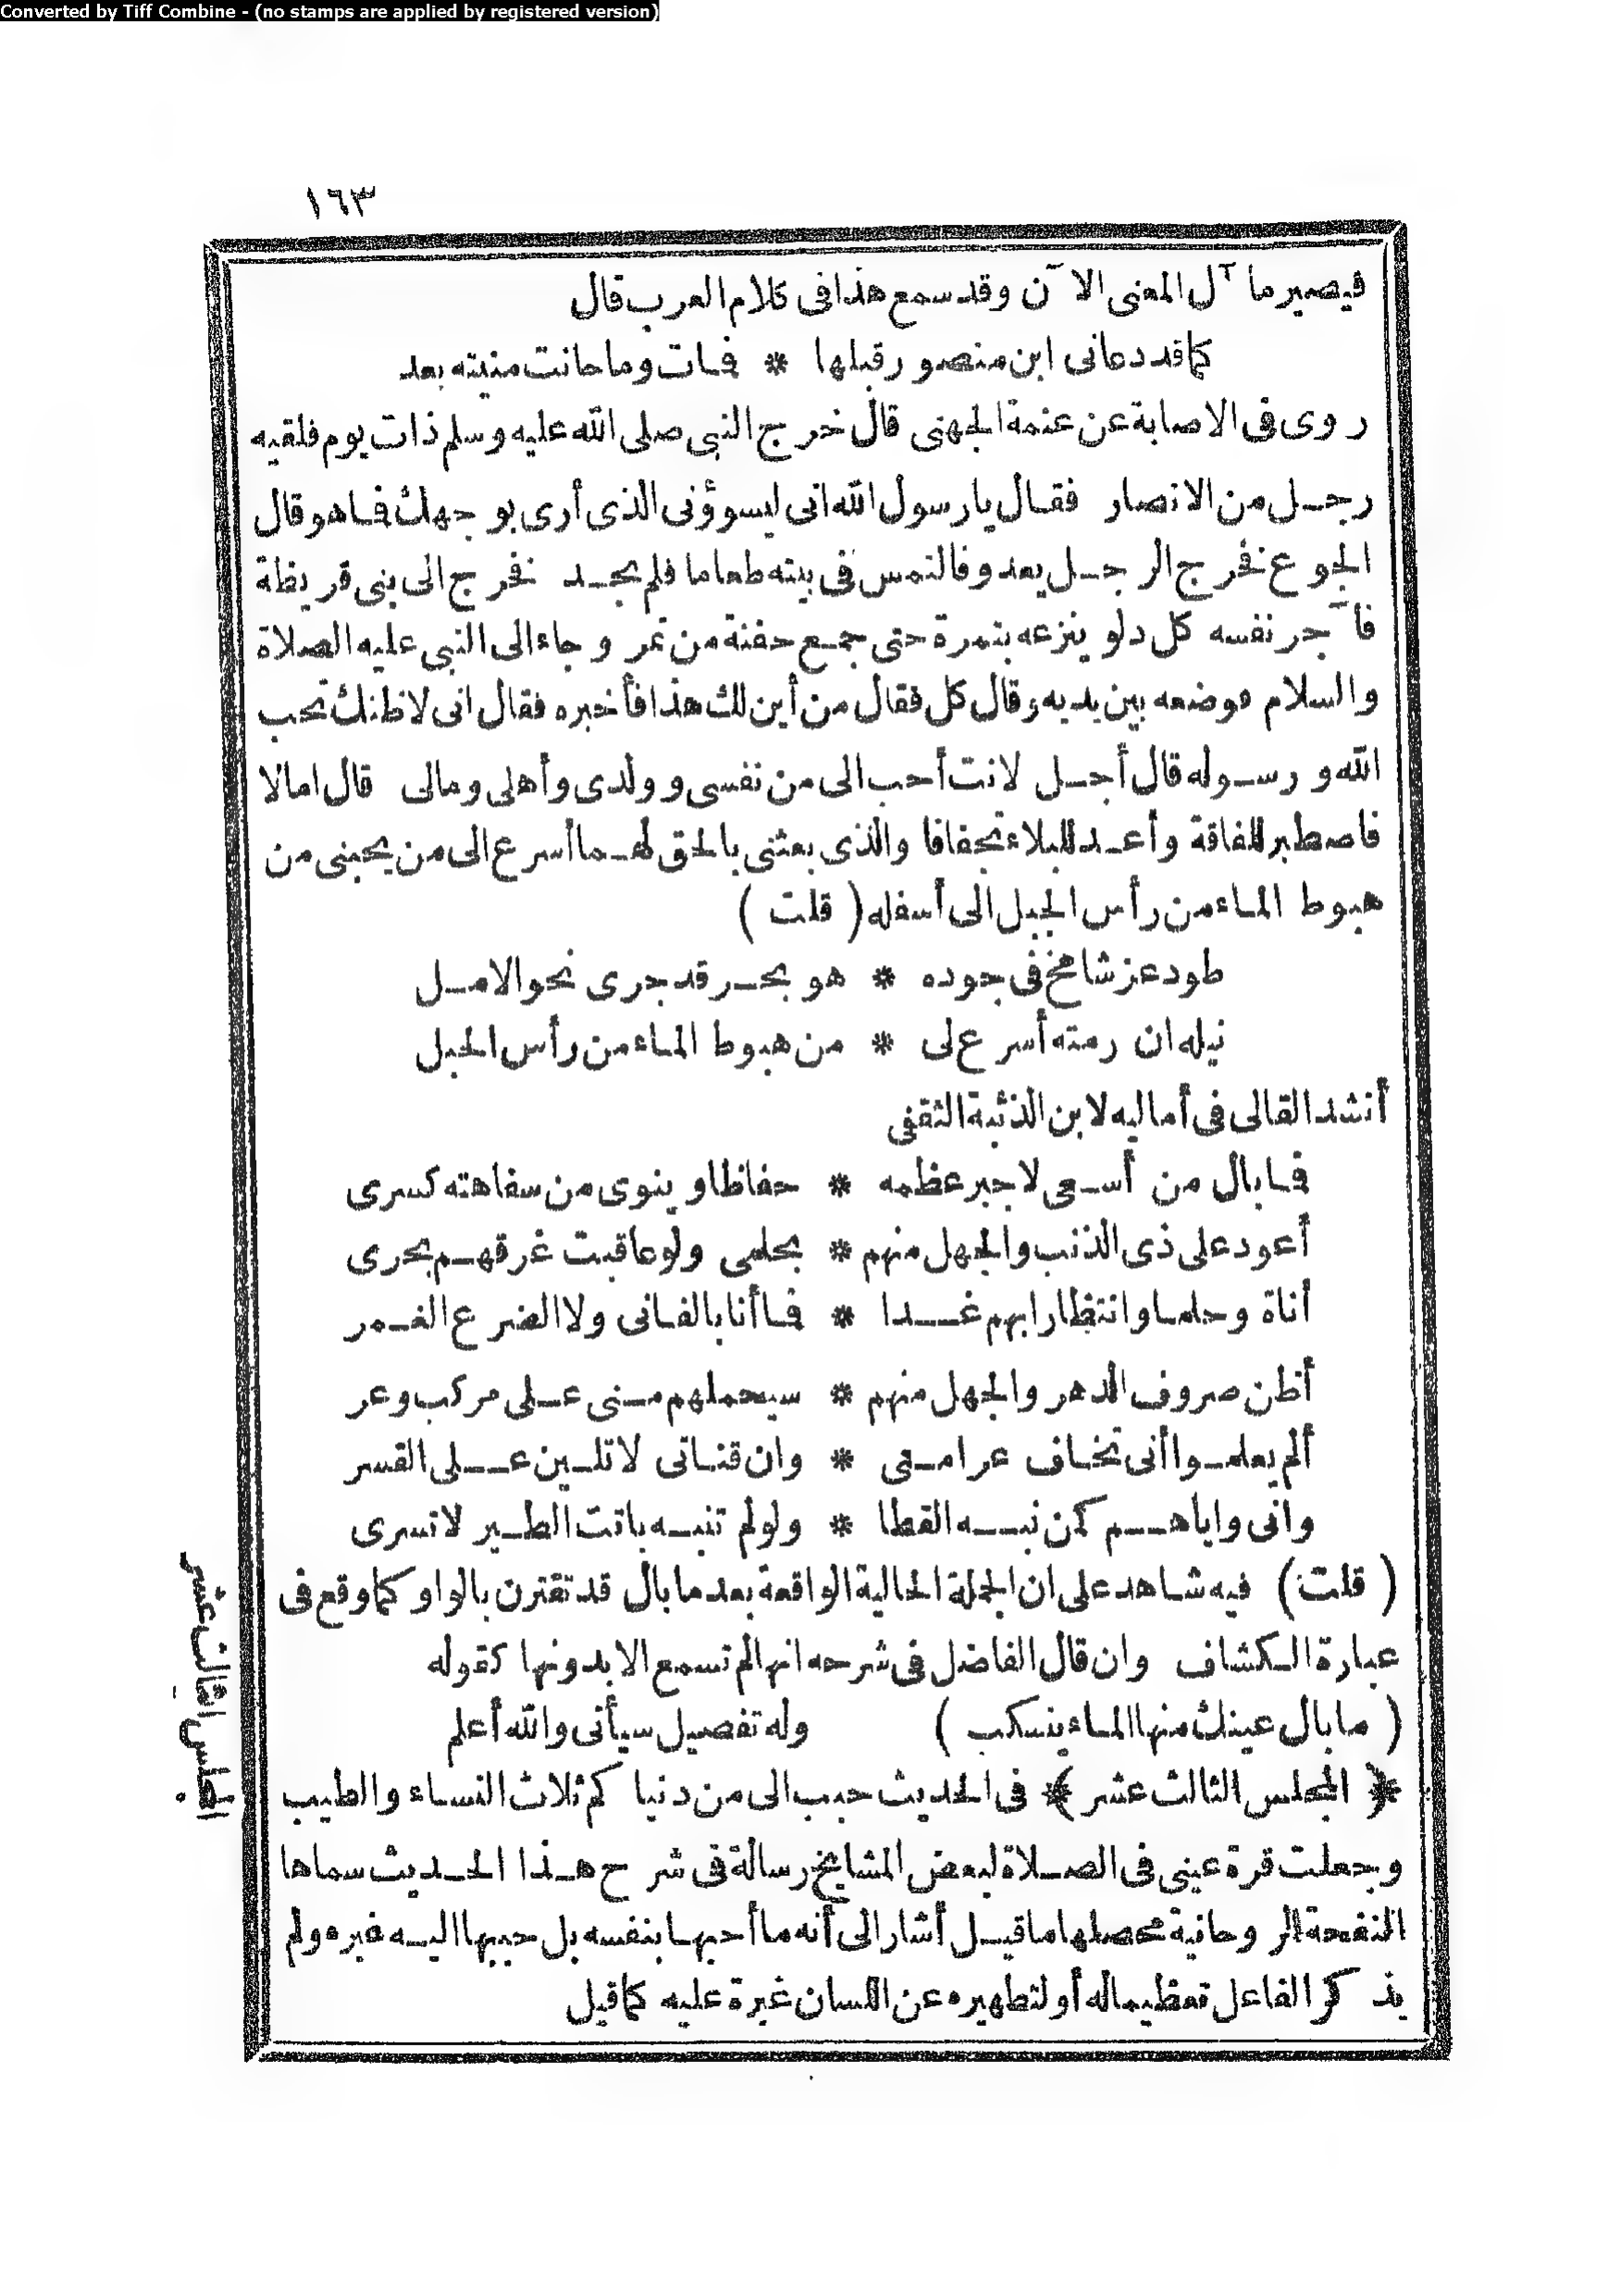 Converted by Tiff Combine - (no stamps are applied by registered version)
١٦٣
فيصير مآل المعنى الآن وقد سمع هذا فى كلام العرب قال
كما قد دعانى ابن منصور قبلها * فمات وما حانت منيته بعد
روى فى الاصابة عن عنمة الجهنى قال خرج النبى صلى الله عليه وسلم ذات يوم فلقيه
رجل من الانصار فقال يا رسول الله انى ليسوؤنى الذى أرى بوجهك فما هو قال
الجوع نفرج الرجل يعدو فالتمس فى بيته طعاما فلم يجد نفرج الى بنى قريظة
فآجر نفسه كل دلو ينزعه بتمرة حتى جمع حفنة من تمر وجاء الى النبى عليه الصلاة
والسلام فوضعه بين يديه وقال كل فقال من أين لك هذا فأخبره فقال انى لاظنك تحب
الله ورسوله قال أجل لانت أحب الى من نفسى وولدى وأهلى ومالى قال امالا
فاصطبر للفاقة وأعد للبلاء تجفافا والذى بعثنى بالحق لهما أسرع الى من يحبنى من
هبوط الماء من رأس الجبل الى أسفله ( قلت )
طود عز شامخ فى جوده * هو بحر قد جرى نحو الامل
نيله ان رمته أسرع لى * من هبوط الماء من رأس الجبل
أنشد القالى فى أماليه لابن الذئبة الثقفى
فما بال من أسعى لاجبر عظمه * حفاظا وينوى من سفاهته كسرى
أعود على ذى الذنب والجهل منهم * بحلمى ولو عاقبت غرقهم بحرى
أناة وحلما وانتظارا بهم غدا * فما أنا بالفانى ولا الضرع الغمر
أظن صروف الدهر والجهل منهم * سيحملهم منى على مركب وعر
ألم يعلموا أنى تخاف عرامتى * وان قناتى لا تلين على القسر
وانى واياهم كمن نبه القطا * ولو لم تنبه باتت الطير لا تسرى
( قلت ) فيه شاهد على ان الجملة الحالية الواقعة بعد ما بال قد تقترن بالواو كما وقع فى
عبارة الكشاف وان قال الفاضل فى شرحه انها لم تسمع الا بدونها كقوله
( ما بال عينك منها الماء ينسكب ) وله تفصيل سيأتى والله أعلم
﴿ المجلس الثالث عشر ﴾ فى الحديث حبب الى من دنيا كم ثلاث النساء والطيب
وجعلت قرة عينى فى الصلاة لبعض المشايخ رسالة فى شرح هذا الحديث سماها
النفحة الروحانية محصلها ما قيل أشار الى أنه ما أحبها بنفسه بل حببها اليه غيره ولم
يذكر الفاعل تعظيما له أو لتطهيره عن اللسان غيرة عليه كما قيل
المجلس الثالث عشر